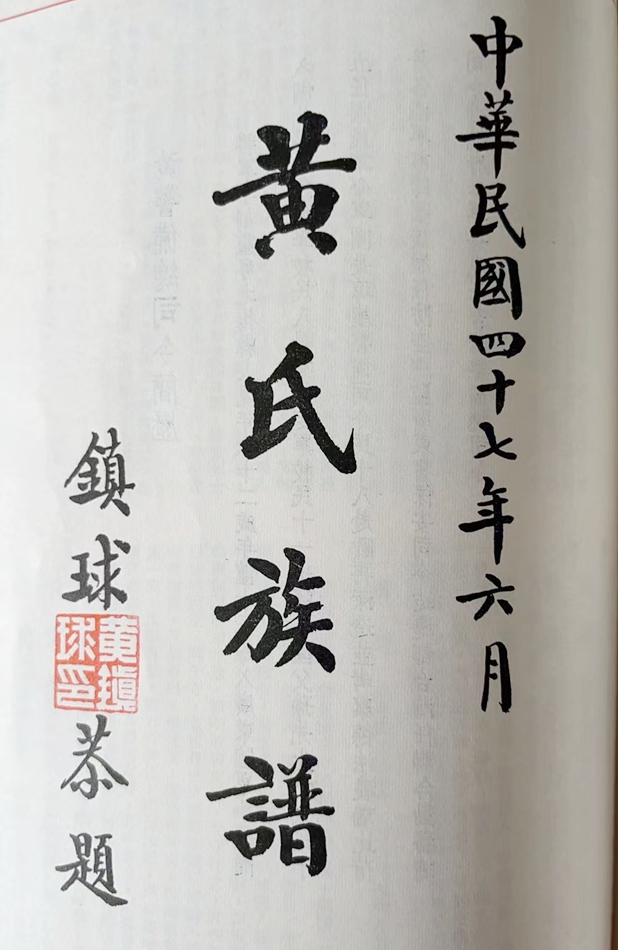 中華民國四十七年六月
黄氏族譜
鎮球
黄鎮球印
恭題